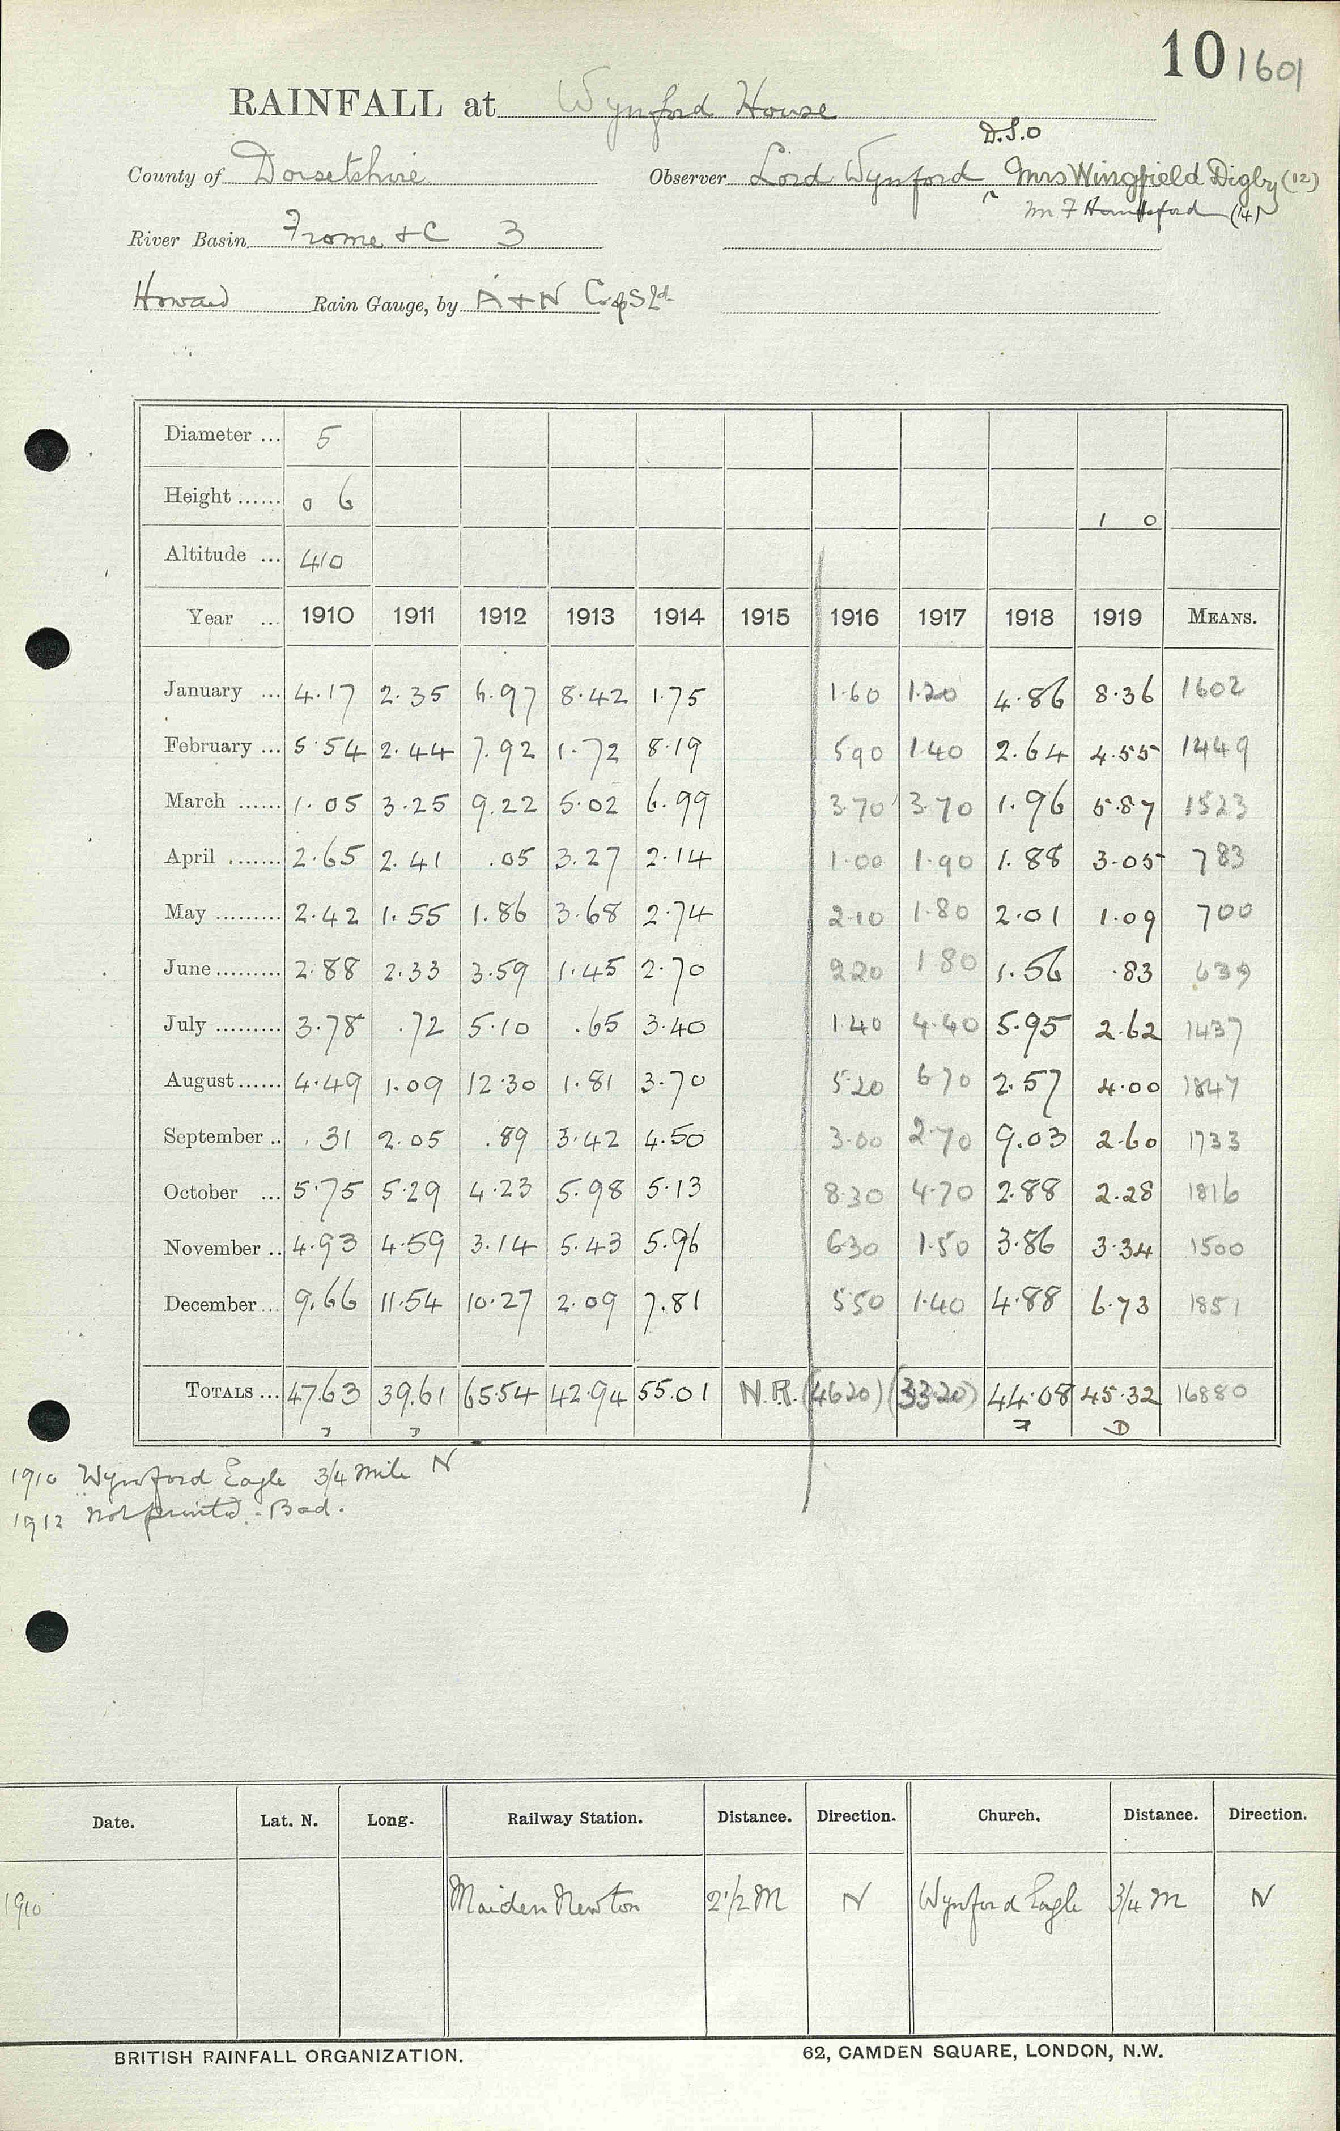 10 1601
RAINFALL at Wynford House
D.S.O
County of Dorsetshire Observer Lord Wynford ^ Mrs Wingfield Digby (12)
Mr F (14)
River Basin Frome & C 3
Howard Rain Gauge, by A & N Ld
Diameter ... 5
Height ...... 0 6 1 0
Altitude ... 410
Year ... 1910 1911 1912 1913 1914 1915 1916 1917 1918 1919 MEANS.
January ... 4.17 2.35 6.97 8.42 1.75 1.60 1.20 4.86 8.36 1602
February ... 5.54 2.44 7.92 1.72 8.19 5.90 1.40 2.64 4.55 1449
March ...... 1.05 3.25 9.22 5.02 6.99 3.70 3.70 1.96 5.87 1523
April ....... 2.65 2.41 .05 3.27 2.14 1.00 1.90 1.88 3.05 783
May ......... 2.42 1.55 1.86 3.68 2.74 2.10 1.80 2.01 1.09 700
June ......... 2.88 2.33 3.59 1.45 2.70 2.20 1.80 1.56 .83 639
July ......... 3.78 .72 5.10 .65 3.40 1.40 4.40 5.95 2.62 1437
August ...... 4.49 1.09 12.30 1.81 3.70 5.20 6.70 2.57 4.00 1847
September .. .31 2.05 .89 3.42 4.50 3.00 2.70 9.03 2.60 1733
October ... 5.75 5.29 4.23 5.98 5.13 8.30 4.70 2.88 2.28 1816
November .. 4.93 4.59 3.14 5.43 5.96 6.30 1.50 3.86 3.34 1500
December ... 9.66 11.54 10.27 2.09 7.81 5.50 1.40 4.88 6.73 1851
TOTALS ... 47.63 39.61 65.54 42.94 55.01 N.R. (46.20) (33.20) 44.08 45.32 16880
1910 Wynford Eagle 3/4 mile N
1912 Not printed. Bad.
Date. Lat. N. Long. Railway Station. Distance. Direction. Church. Distance. Direction.
1910 Maiden Newton 2 1/2 M N Wynford Eagle 3/4 M N
BRITISH RAINFALL ORGANIZATION. 62, CAMDEN SQUARE, LONDON, N.W.